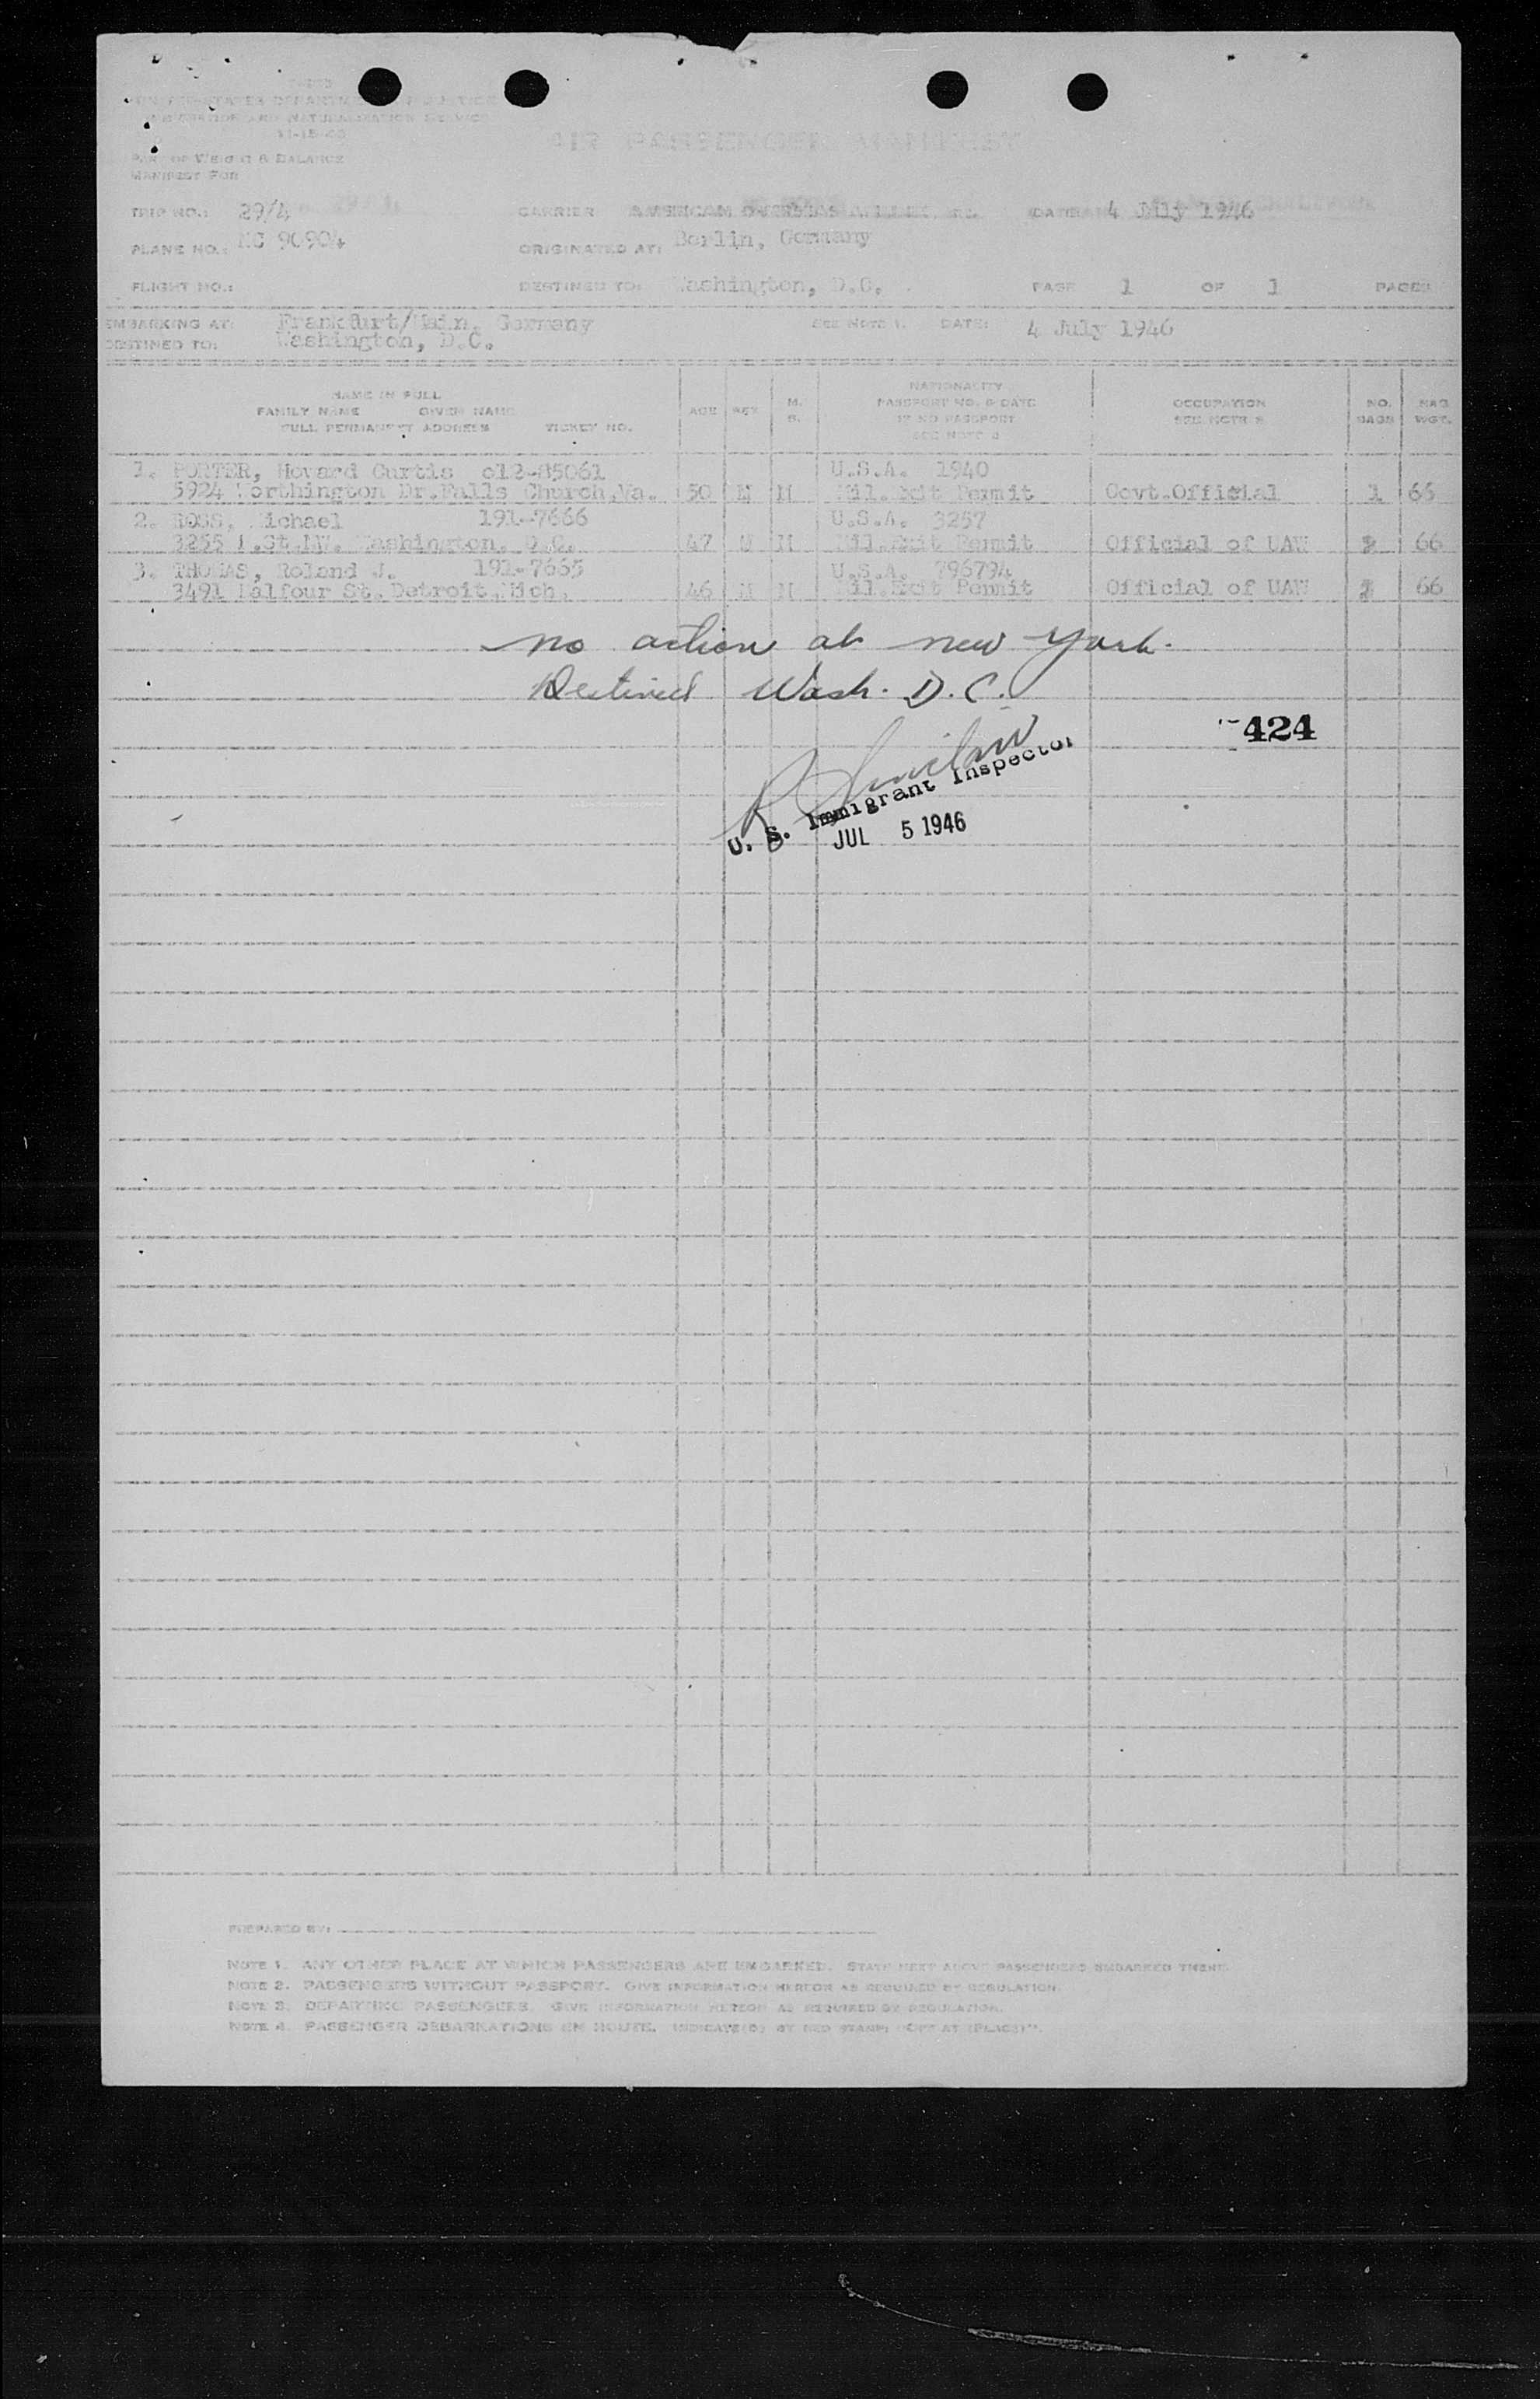 UNITED STATES DEPARTMENT OF JUSTICE
IMMIGRATION AND NATURALIZATION SERVICE
11-15-45
AIR PASSENGER MANIFEST
PART OF WEIGHT & BALANCE
MANIFEST FOR
TRIP NO.: 29/4 CARRIER AMERICAN OVERSEAS AIRLINES, DATE: 4 July 1946
PLANE NO.: NC 90904 ORIGINATED AT: Berlin, Germany
FLIGHT NO.: DESTINED TO: Washington, D.C. PAGE 1 OF 1 PAGES
EMBARKING AT: Frankfurt/Main, Germany SEE NOTE 1. DATE: 4 July 1946
DESTINED TO: Washington, D.C.
NAME IN FULL
FAMILY NAME GIVEN NAME
FULL PERMANENT ADDRESS TICKET NO.
AGE SEX M. S.
NATIONALITY
PASSPORT NO. & DATE
IF NO PASSPORT
SEE NOTE 2
OCCUPATION
SEE NOTE 3
NO. BAGS
BAG. WGT.
1. PORTER, Howard Curtis o12-85061 U.S.A. 1940
5924 Worthington Dr.Falls Church,Va. 50 M M Mil.Exit Permit Govt.Official 1 66
2. ROSS, Michael 191-7666 U.S.A. 3257
3255 St.NW. Washington, D.C. 47 M M Mil.Exit Permit Official of UAW 66
3. THOMAS, Roland J. 191-7665 U.S.A. 796794
3491 Balfour St.Detroit,Mich. 46 M M Mil.Exit Permit Official of UAW 66
No action at New York.
Destined Wash. D.C.
424
U. S. Immigrant Inspector
JUL 5 1946
PREPARED BY:
NOTE 1. ANY OTHER PLACE AT WHICH PASSENGERS ARE EMBARKED. STATE NEXT ABOVE PASSENGERS EMBARKED THERE.
NOTE 2. PASSENGERS WITHOUT PASSPORT. GIVE INFORMATION HEREON AS REQUIRED BY REGULATION.
NOTE 3. DEPARTING PASSENGERS. GIVE INFORMATION HEREON AS REQUIRED BY REGULATION.
NOTE 4. PASSENGER DEBARKATIONS EN ROUTE. INDICATE(D) BY RED STAMP: "OFF AT (PLACE)".